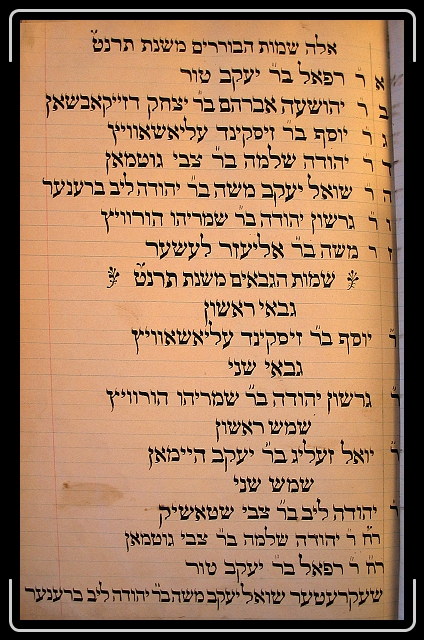 אלה שמות הבוררים משנת תרנט
א ר רפאל בר יעקב טור
ב ר יהושעה אברהם בר יצחק דזייקאבשאן
ג ר יוסף בר זיסקינד עליאשאוויץ
ד ר יהודה שלמה בר צבי גוטמאן
ה ר שואל יעקב משה בר יהודה ליב ברענער
ו ר גרשון יהודה בר שמריהו הורוויץ
ז ר משה בר אליעזר לעשער
שמות הגבאים משנת תרנט
גבאי ראשון
ר יוסף בר זיסקינד עליאשאוויץ
גבאי שני
ר גרשון יהודה בר שמריהו הורוויץ
שמש ראשון
ר יואל זעליג בר יעקב היימאן
שמש שני
ר יהודה ליב בר צבי שטאשיק
רח ר יהודה שלמה בר צבי גוטמאן
רח ר רפאל בר יעקב טור
שעקרעטער שואל יעקב משה בר יהודה ליב ברענער